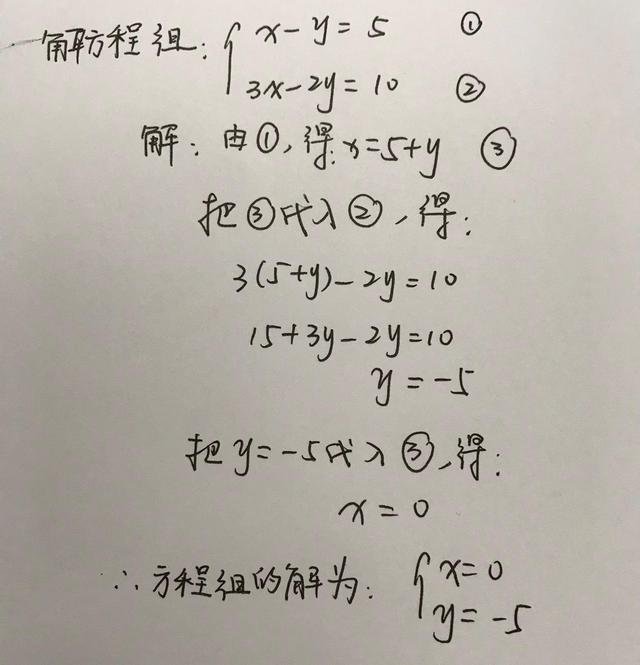 解方程组: { x - y = 5 ①
3x - 2y = 10 ②
解: 由①, 得: x = 5 + y ③
把③代入②, 得:
3(5+y) - 2y = 10
15 + 3y - 2y = 10
y = -5
把 y = -5 代入③, 得:
x = 0
∴ 方程组的解为: { x = 0
y = -5